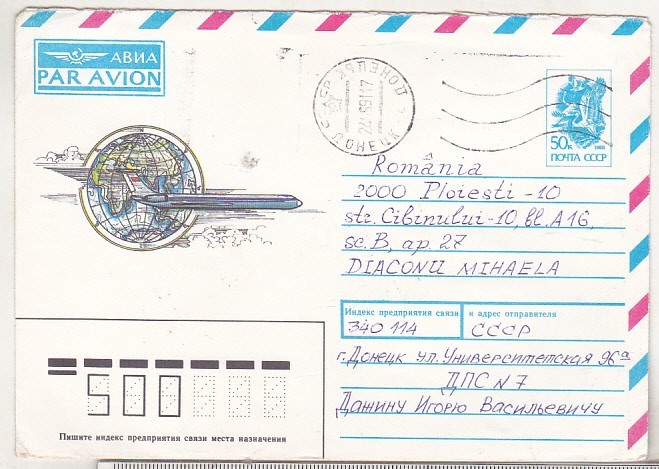 АВИА
PAR AVION
СССР ДОНЕЦЬК
ДОНЕЦК
50к
1988
ПОЧТА СССР
România
2000 Ploiești -10
str. Cibinului-10, bl. A16,
sc. B, ap. 27
DIACONU MIHAELA
Индекс предприятия связи и адрес отправителя
340 114 СССР
г. Донецк ул. Университетская 96а
ДПС N 7
Дажину Игорю Васильевичу
500
Пишите индекс предприятия связи места назначения